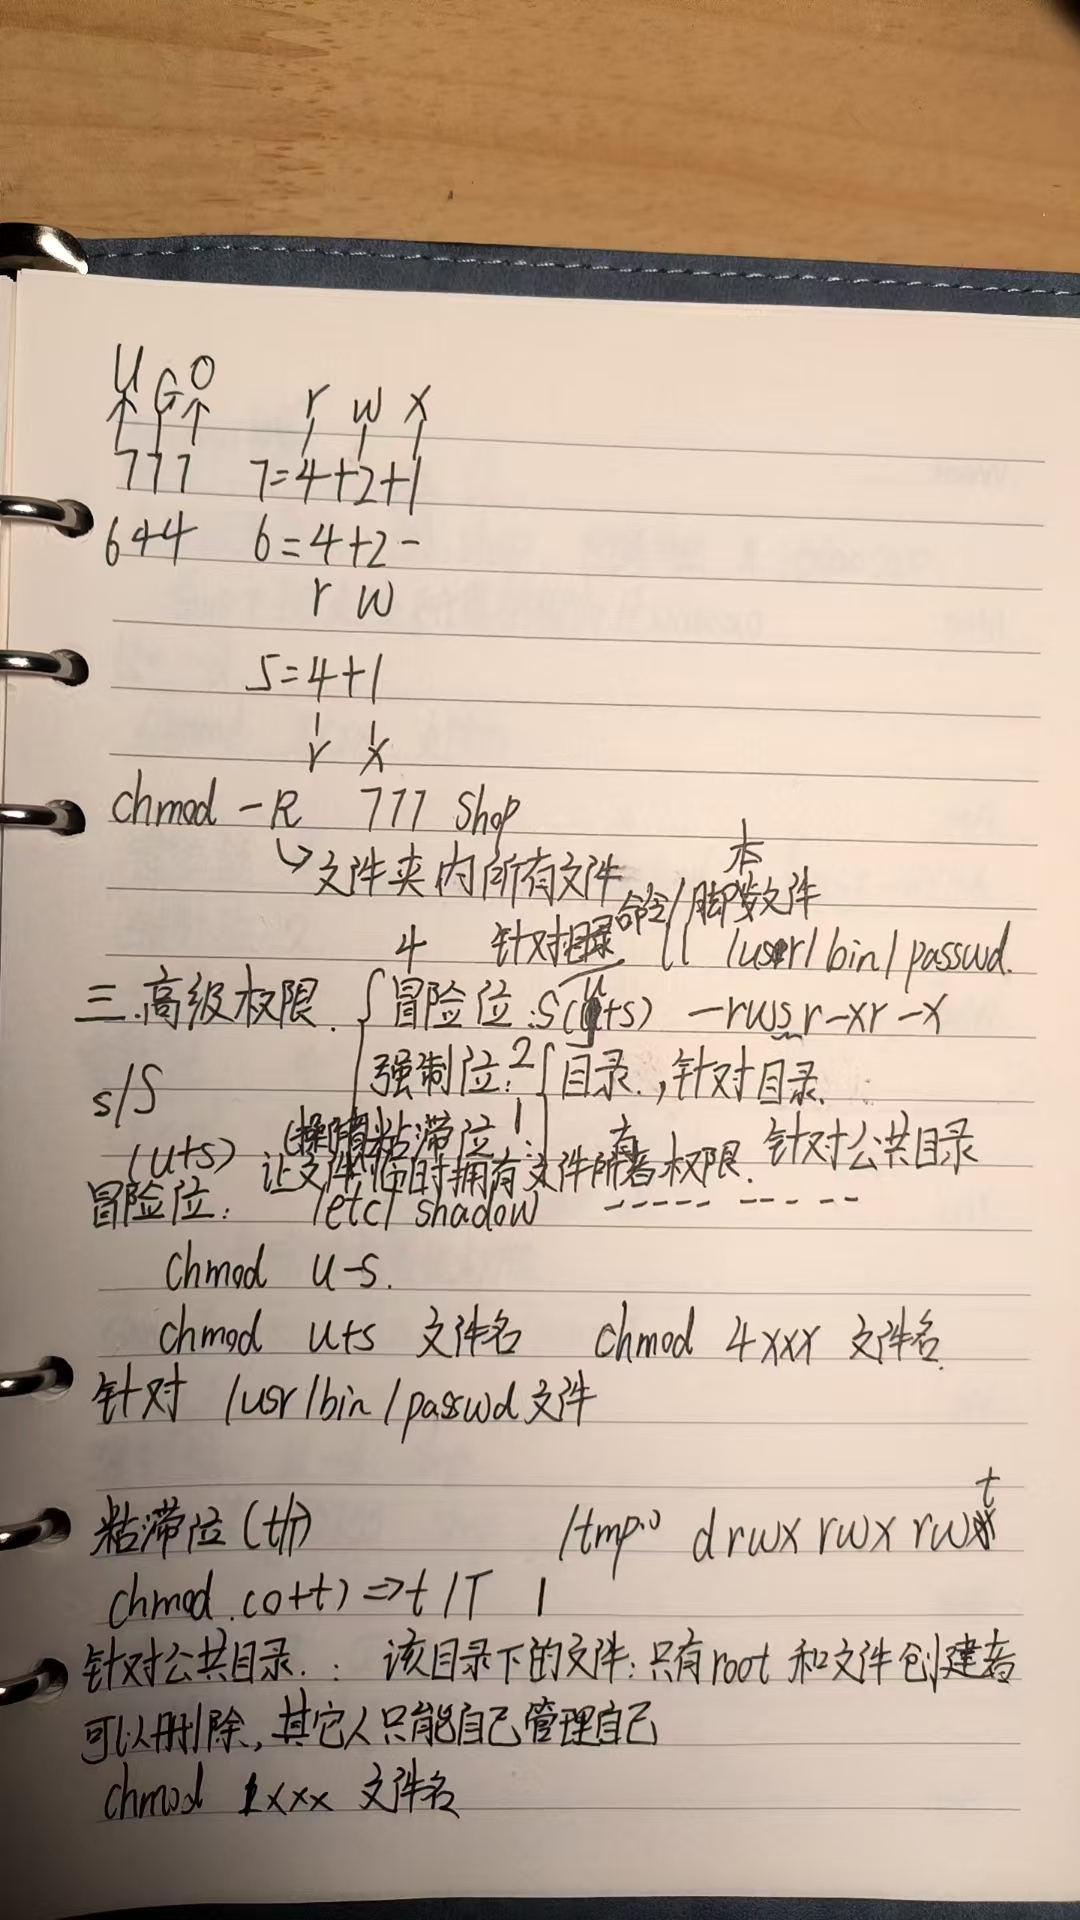 U G O
r w x
777 7=4+2+1
644 6=4+2-
r w
5=4+1
r x
chmod -R 777 Shop
↳文件夹内所有文件
4 针对目录 命令/脚本文件
ll /usr/bin/passwd.
三.高级权限. 冒险位:S(u+s) -rwsr-xr-x
强制位:2 目录.,针对目录.
s/S
粘滞位:1 针对公共目录
(u+s) 让文件临时拥有文件所有者权限.
冒险位: /etc/shadow ----- -----
chmod u-s.
chmod u+s 文件名 chmod 4xxx 文件名.
针对 /usr/bin/passwd文件
粘滞位(t/T) /tmp: drwx rwx rwt
chmod.(o+t)=>t/T 1
针对公共目录.: 该目录下的文件:只有root 和文件创建者
可以删除,其它人只能自己管理自己
chmod 1xxx 文件名